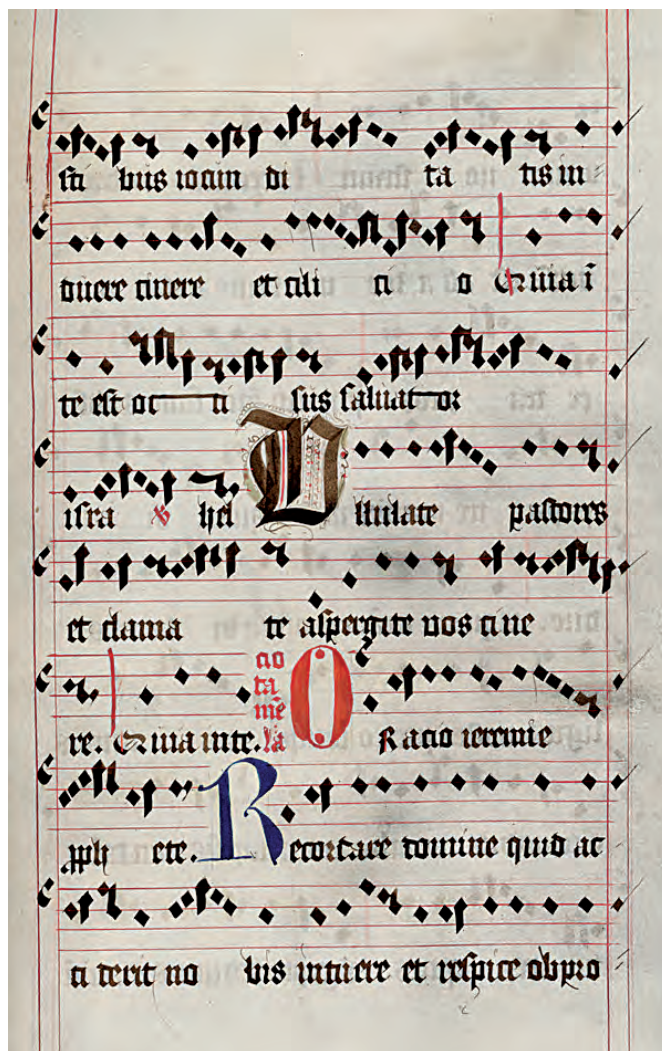 sti bus iocun di ta tis in
duere cinere et cili ci o Quia ī
te est oc ci sus saluat or
isra v hel Ululate pastores
et clama te aspergite vos cine
re. Quia in te. la mē ta cio Oratio ieremie
pph ete. Recordare domine quid ac
ci derit no bis intuere et respice obpro